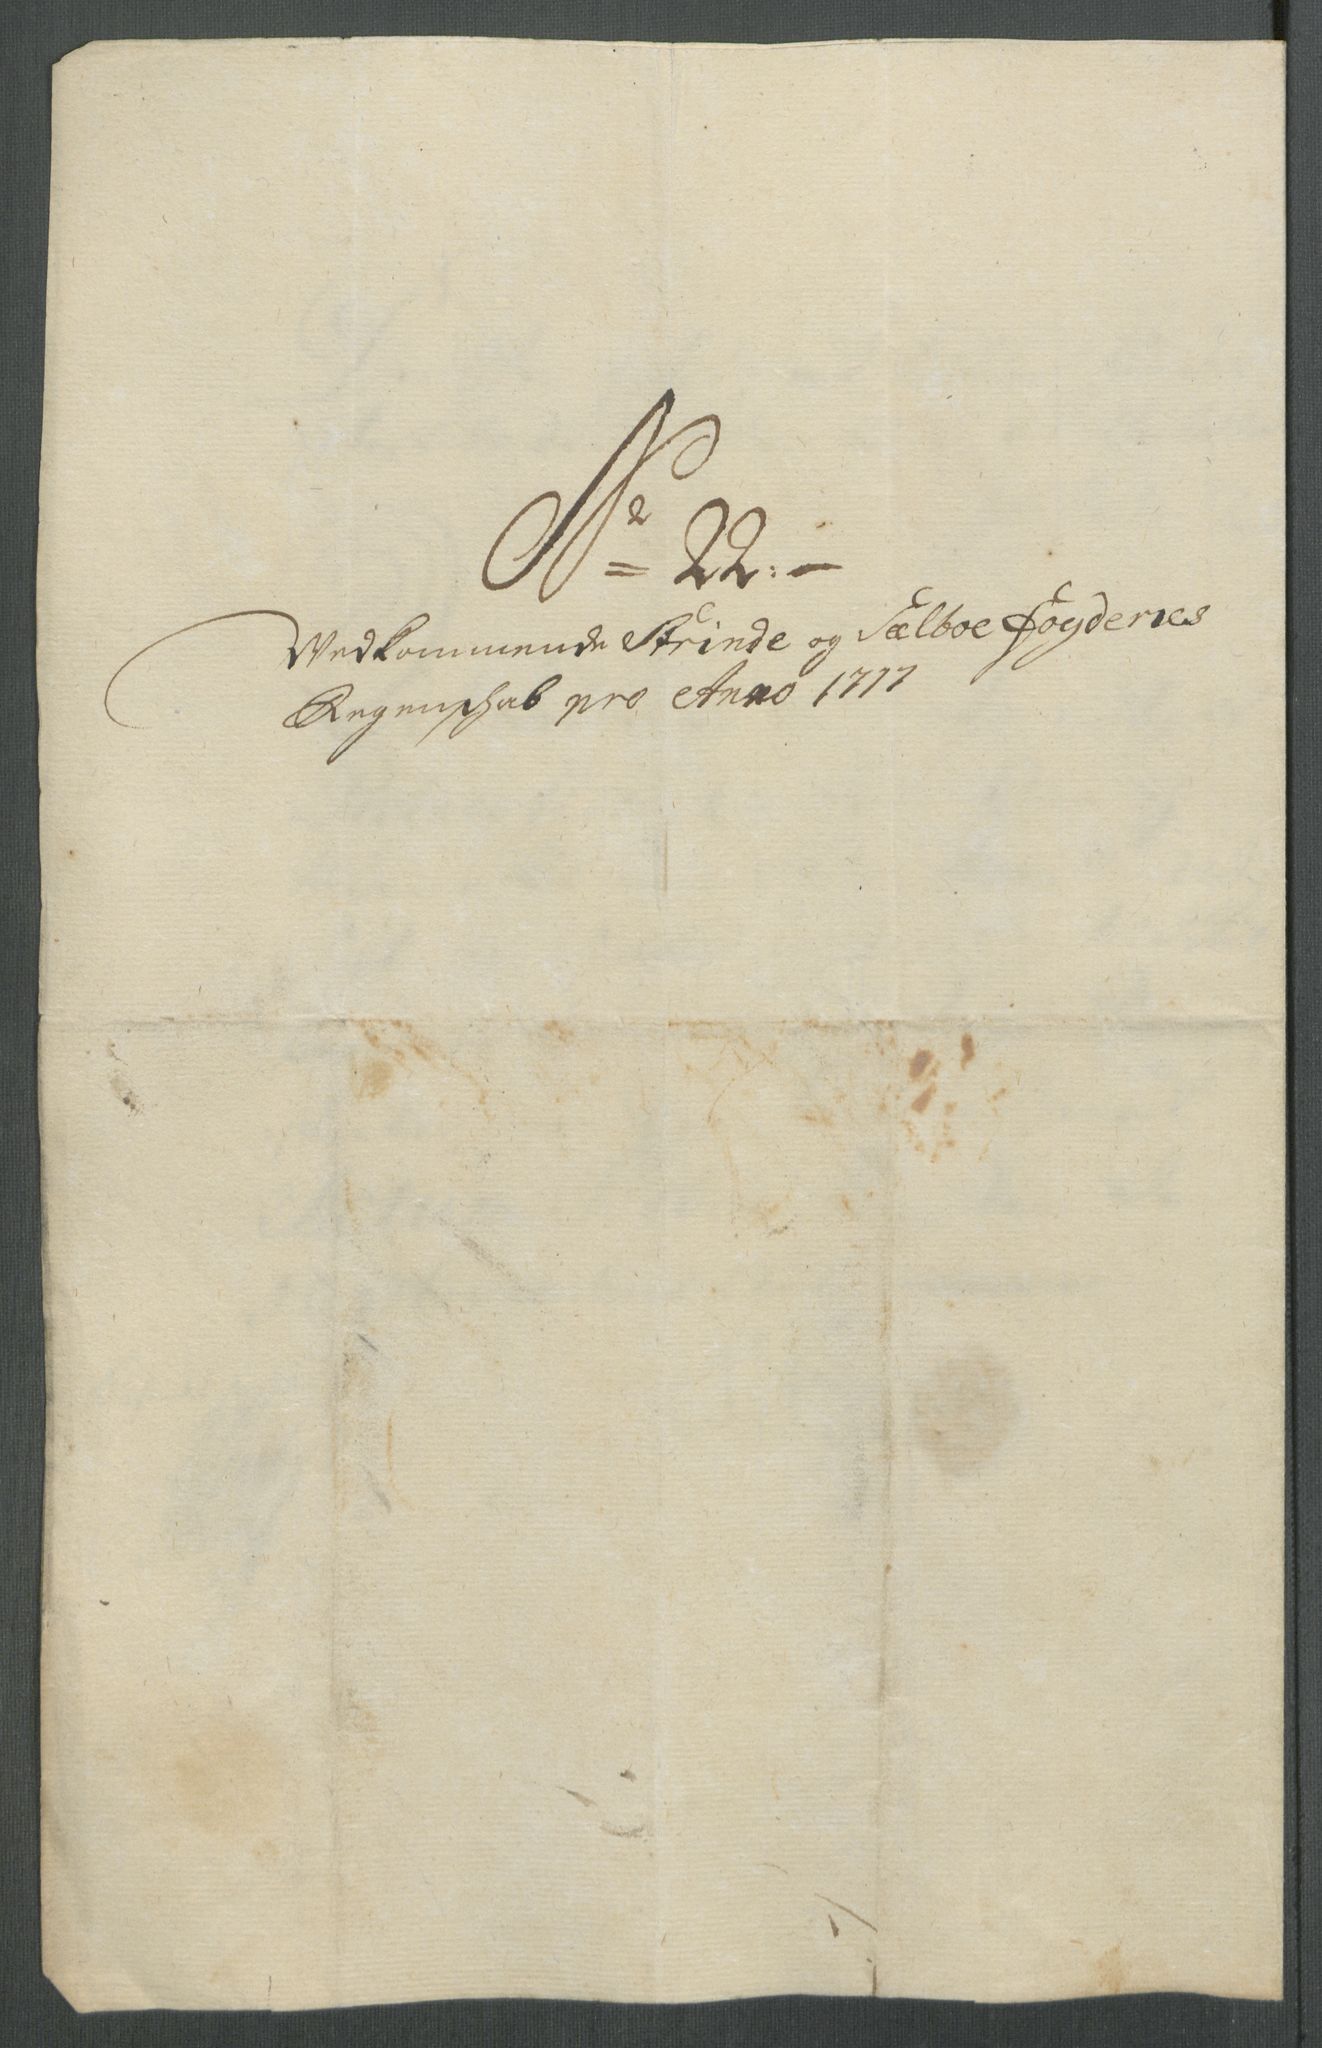 No 22. —
Vedkommende Strinde og Sælboe Fogderies
Regenschab pro Anno 1717